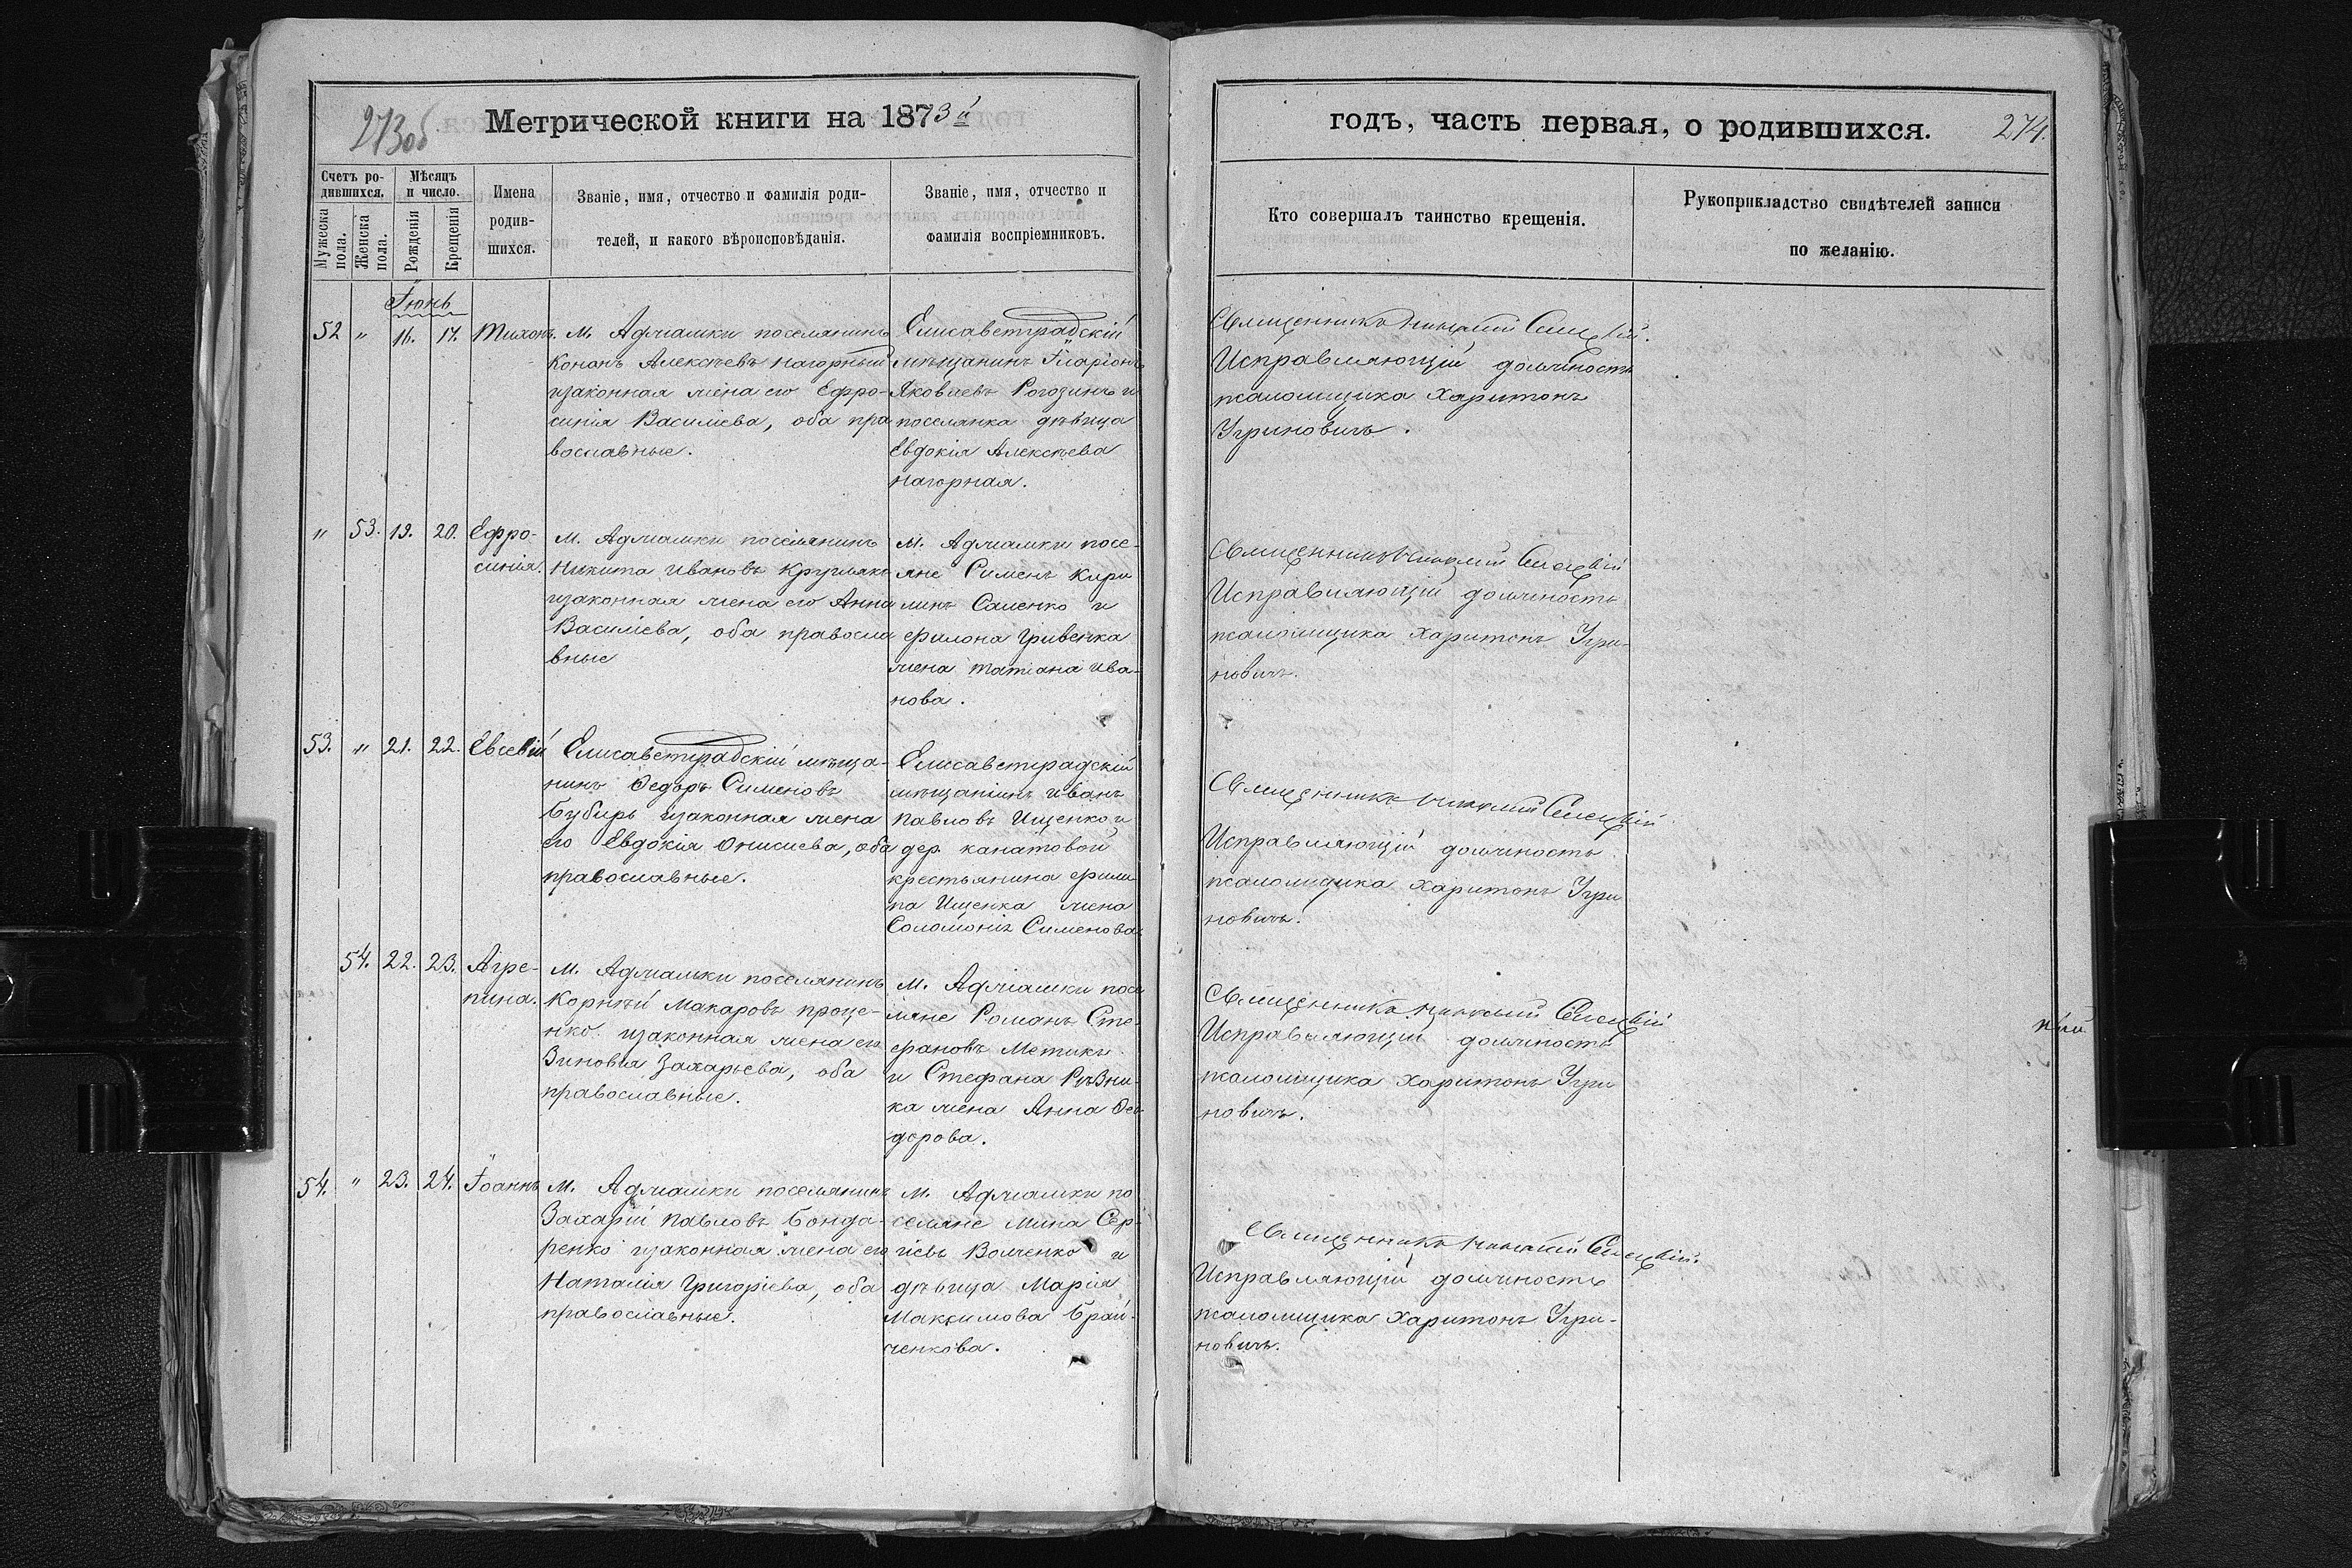 273об
Метрической книги на 1873й
Счетъ ро-
дившихся.
Мужеска пола.
Женска пола.
Мѣсяцъ
и число.
Рожденія
Крещенія
Имена
родив-
шихся.
Званіе, имя, отчество и фамилія роди-
телей, и какого вѣроисповѣданія.
Званіе, имя, отчество и
фамилія воспріемниковъ.
Іюнь
52 " 16. 17. Тихонъ.
М. Аджамки поселянинъ
Кононъ Алексѣевъ Нагорный
изаконная жена его Ефро-
синія Василіева, оба пра
вославные.
Елисаветградскій
мѣщанинъ Іларіонъ
Яковлевъ Рогозинъ и
поселянка дѣвица
Евдокія Алексѣева
Нагорная.
" 53. 19. 20. Ефро-
синія.
М. Аджамки поселянинъ
Никита Ивановъ
изаконная жена его Анна
Василіева, оба правосла
вные
М. Аджамки посе-
ляне Сименъ Кири
ликъ Саленко и
Филона Гривенка
жена Татіана Ива-
нова.
53. " 21. 22. Евсевій
Елисаветградскій мѣща-
нинъ Ѳедоръ Сименовъ
Бубырь изаконная жена
его Евдокія Онисиева, оба
православные.
Елисаветградскій
мѣщанинъ Иванъ
Павловъ Ищенко и
дер. Канатовой
крестьянина Фили
па Ищенка жена
Соломонія Сименова
54. 22. 23. Агре-
пина.
М. Аджамки поселянинъ
Корнѣй Макаровъ Проце-
нко изаконная жена его
Зиновія Захарьева, оба
православные.
М. Аджамки посе
ляне Романъ Сте-
фановъ Метикъ
и Стефана Рѣзни-
ка жена Анна Ѳео-
дорова.
54. " 23. 24. Іоаннъ
М. Аджамки поселянинъ
Захарій Павловъ Бонда-
ренко изаконная жена его
Наталія Григоріева, оба
православные.
М. Аджамки по
селяне Мина Сер-
гіевъ Волченко и
дѣвица Марія
Максимова Край-
ченкова.
годъ, часть первая, о родившихся.
274.
Кто совершалъ таинство крещенія.
Рукоприкладство свидѣтелей записи
по желанію.
Священникъ Николай
Исправляющій должность
псаломщика Харитонъ
Угриновичъ.
Священникъ Николай
Исправляющій должность
псаломщика Харитонъ Угри-
новичъ.
Священникъ Николай
Исправляющій должность
псаломщика Харитонъ Угри
новичъ.
Священникъ Николай
Исправляющій должность
псаломщика Харитонъ Угри
новичъ.
Священникъ Николай
Исправляющій должность
псаломщика Харитонъ Угри-
новичъ.